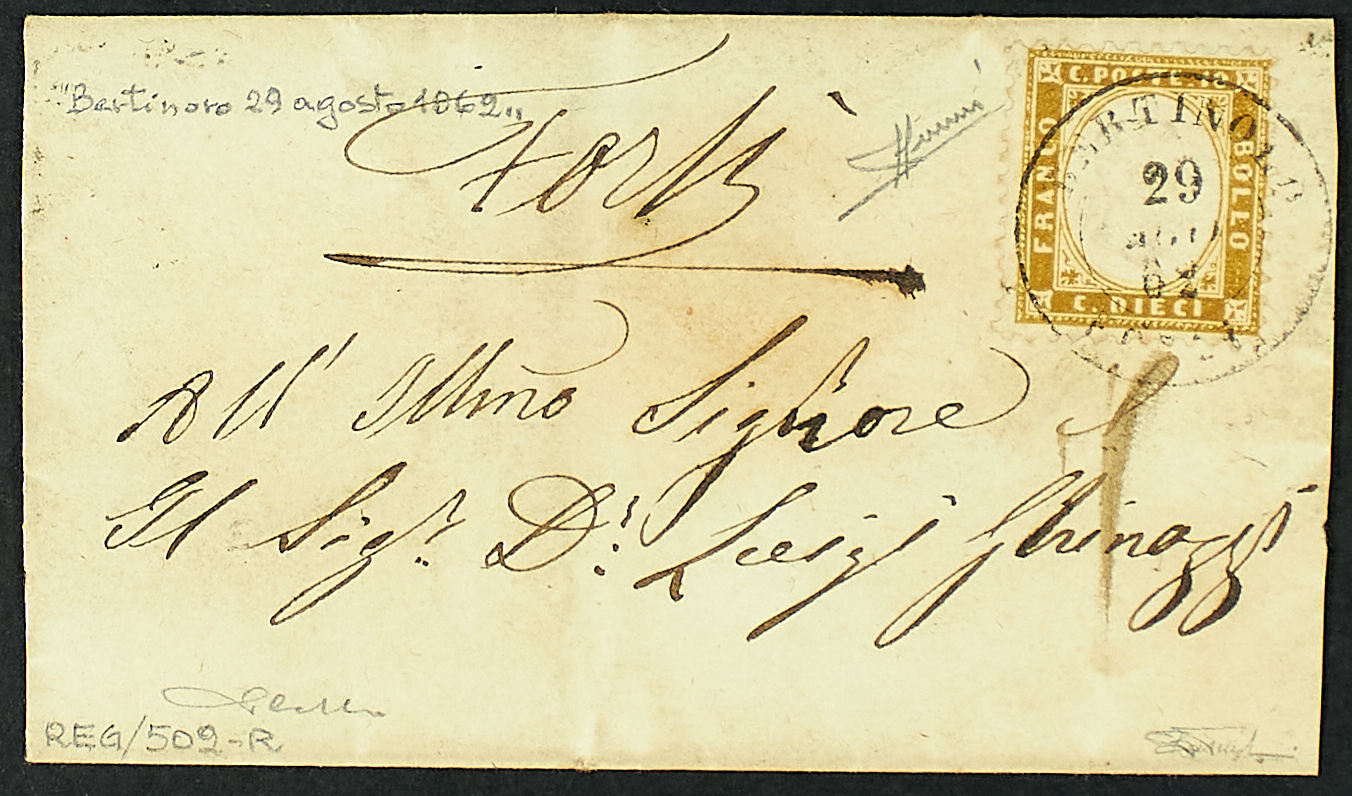 "Bertinoro 29 agosto 1862"
Forlì
C. POSTALE
FRANCO
BOLLO
C. DIECI
BERTINORO
29
AGO
62
All' Illmo Signore
Il Sigr. Dr. Luigi Ghinozzi
REG/502-R